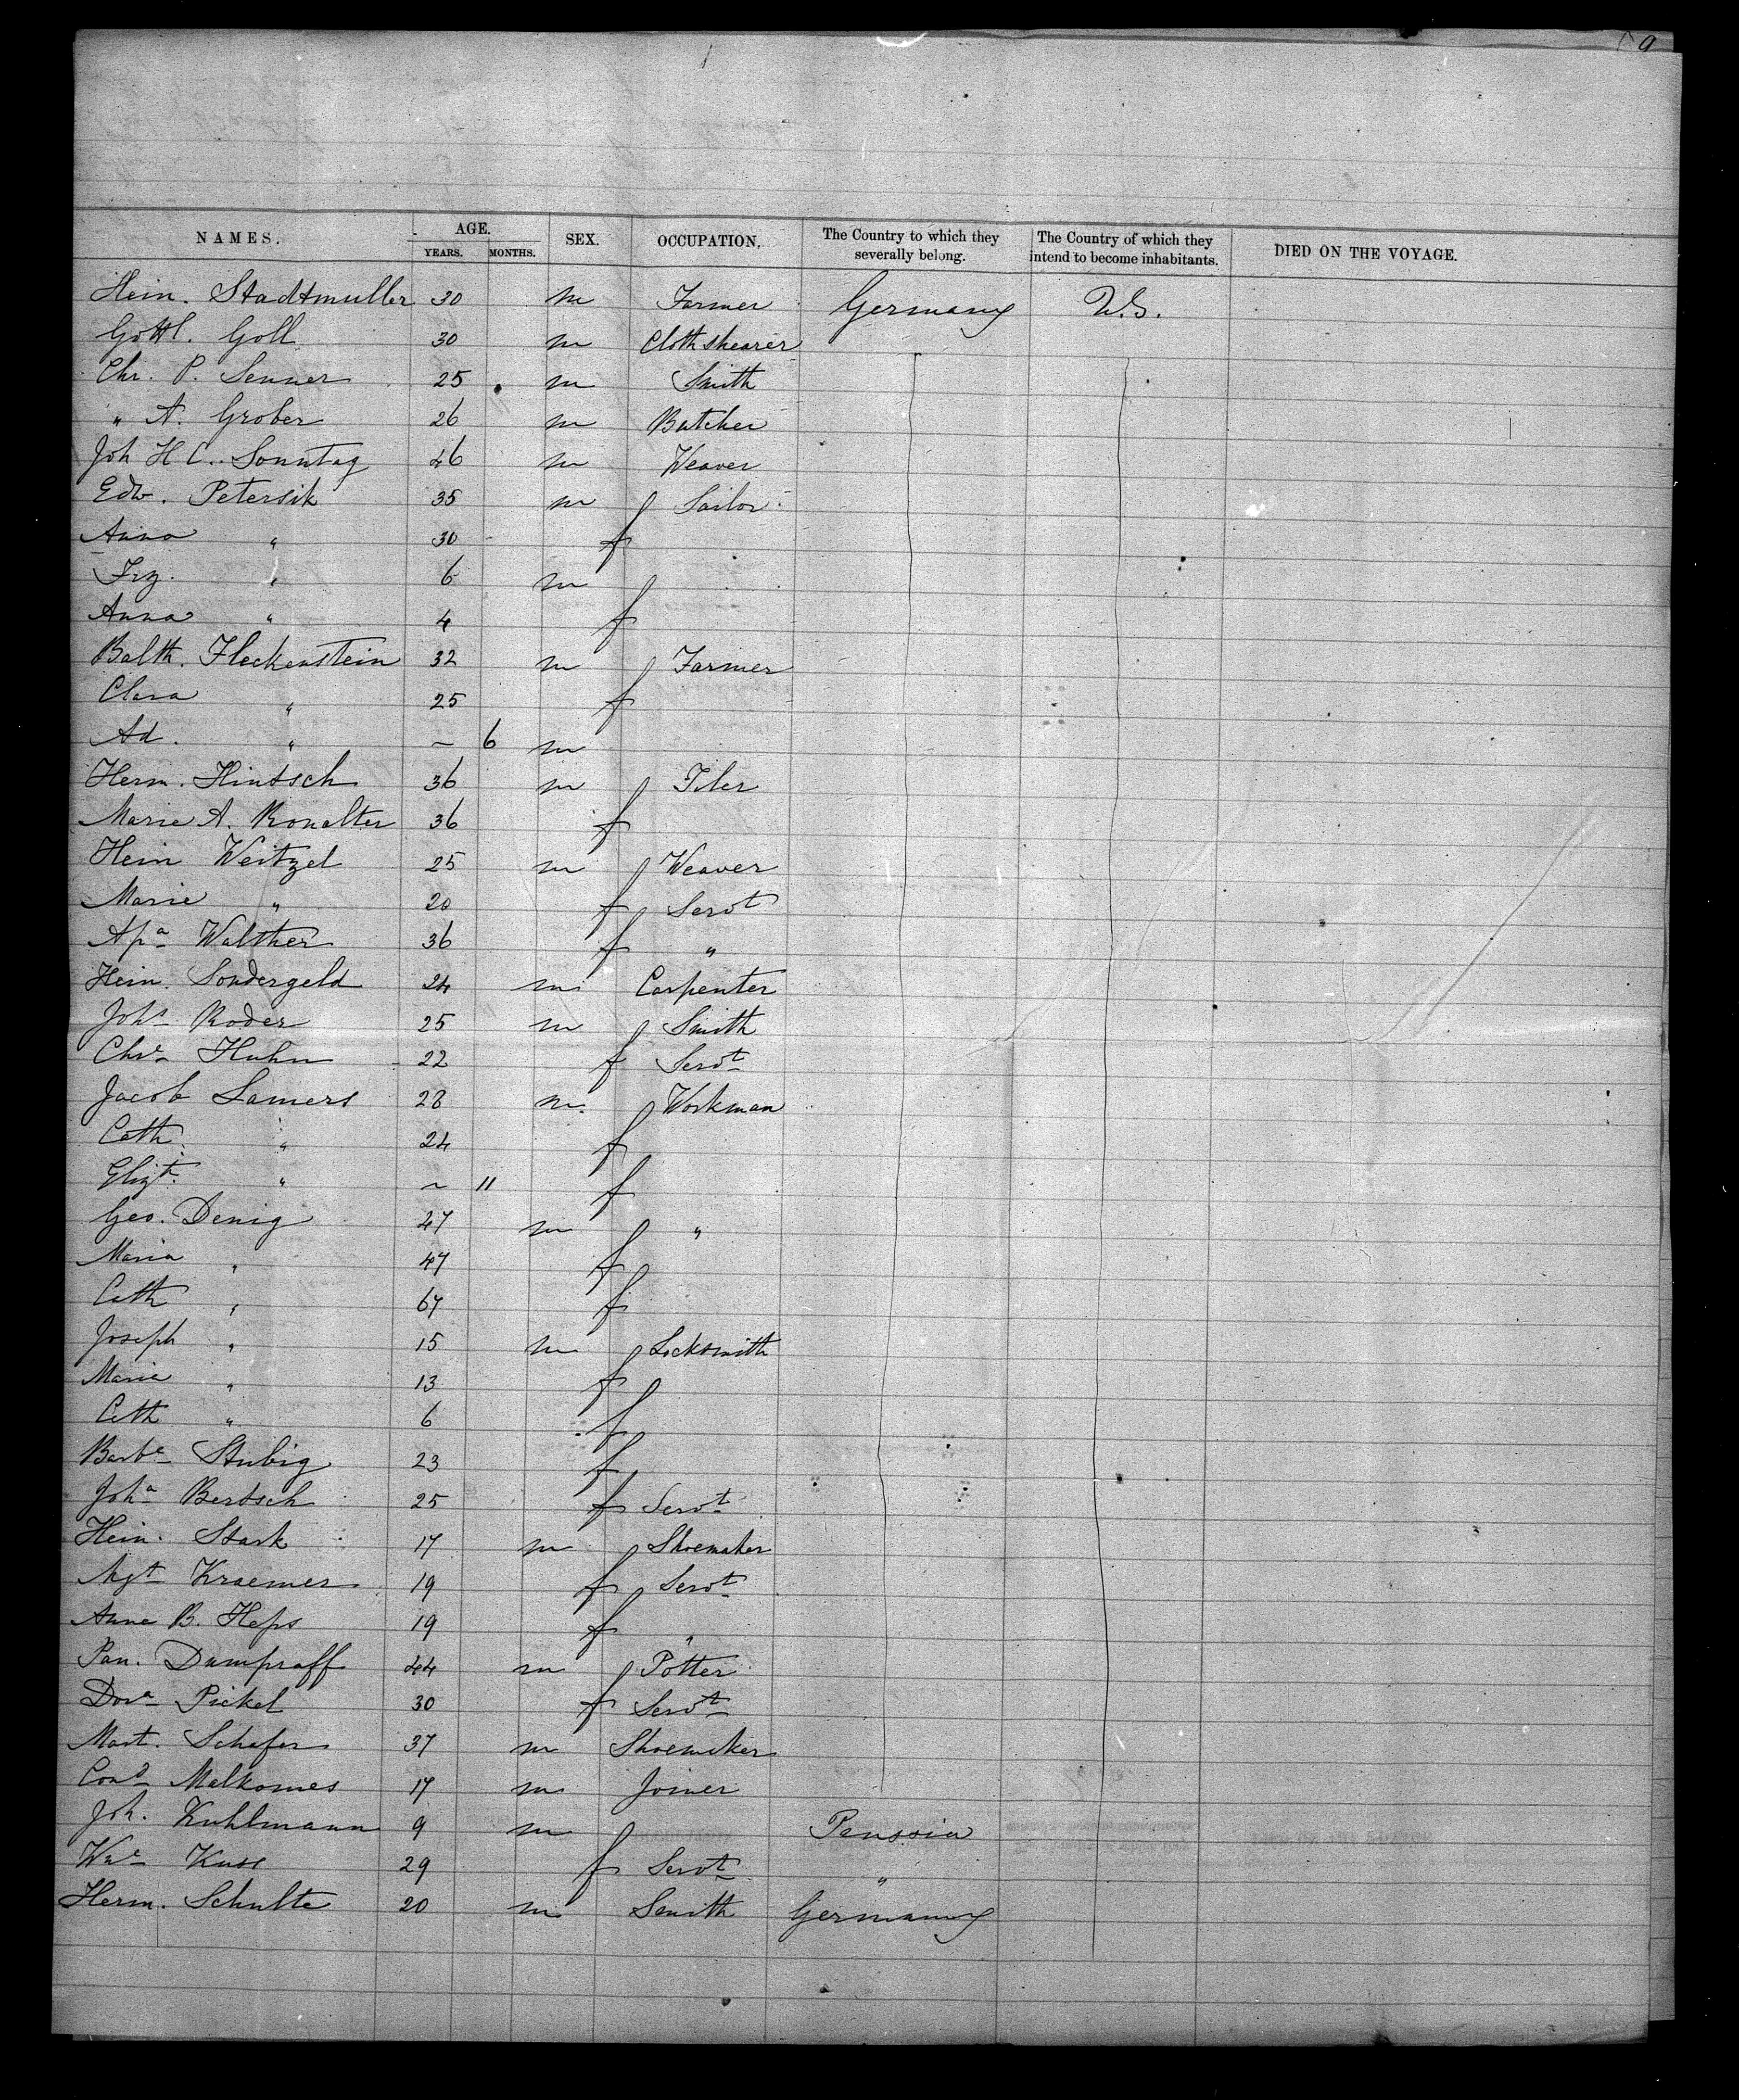 9
NAMES. AGE. YEARS. MONTHS. SEX. OCCUPATION. The Country to which they severally belong. The Country of which they intend to become inhabitants. DIED ON THE VOYAGE.
Hein. Stadtmuller 30 m Farmer Germany U.S.
Gottl. Goll 30 m Clothshearer
Chr. P. Senner 25 m Smith
" A. Grober 26 m Butcher
Joh H C. Sonntag 46 m Weaver
Edw. Petersik 35 m Sailor
Anna " 30 f
Frz. " 6 m
Anna " 4 f
Balth. Fleckenstein 32 m Farmer
Clara " 25 f
Ad. " – 6 m
Herm. Hintsch 36 m Tiler
Marie A. Ronalter 36 f
Hein Weitzel 25 m Weaver
Marie " 20 f Servt
Apa Walther 36 f "
Hein. Sondergeld 24 m Carpenter
Johs Roder 25 m Smith
Chre Huhn 22 f Servt
Jacob Lamers 28 m Workman
Cath. " 24 f
Elizt. " – 11 f
Geo. Denig 47 m "
Maria " 47 f
Cath " 67 f
Joseph " 15 m Locksmith
Marie " 13 f
Cath " 6 f
Barbe Stubig 23 f
Joha Bertsch 25 f Servt
Hein. Stark 17 m Shoemaker
Mgt Kraemer 19 f Servt
Anna B. Heps 19 f "
Pan. Dumpraff 44 m Potter
Dora Pickel 30 f Servt
Mart. Schafer 37 m Shoemaker
Cond Malkomes 17 m Joiner
Joh. Kuhlmann 9 m Prussia
Wne Kuss 29 f Servt "
Herm. Schulte 20 m Smith Germany